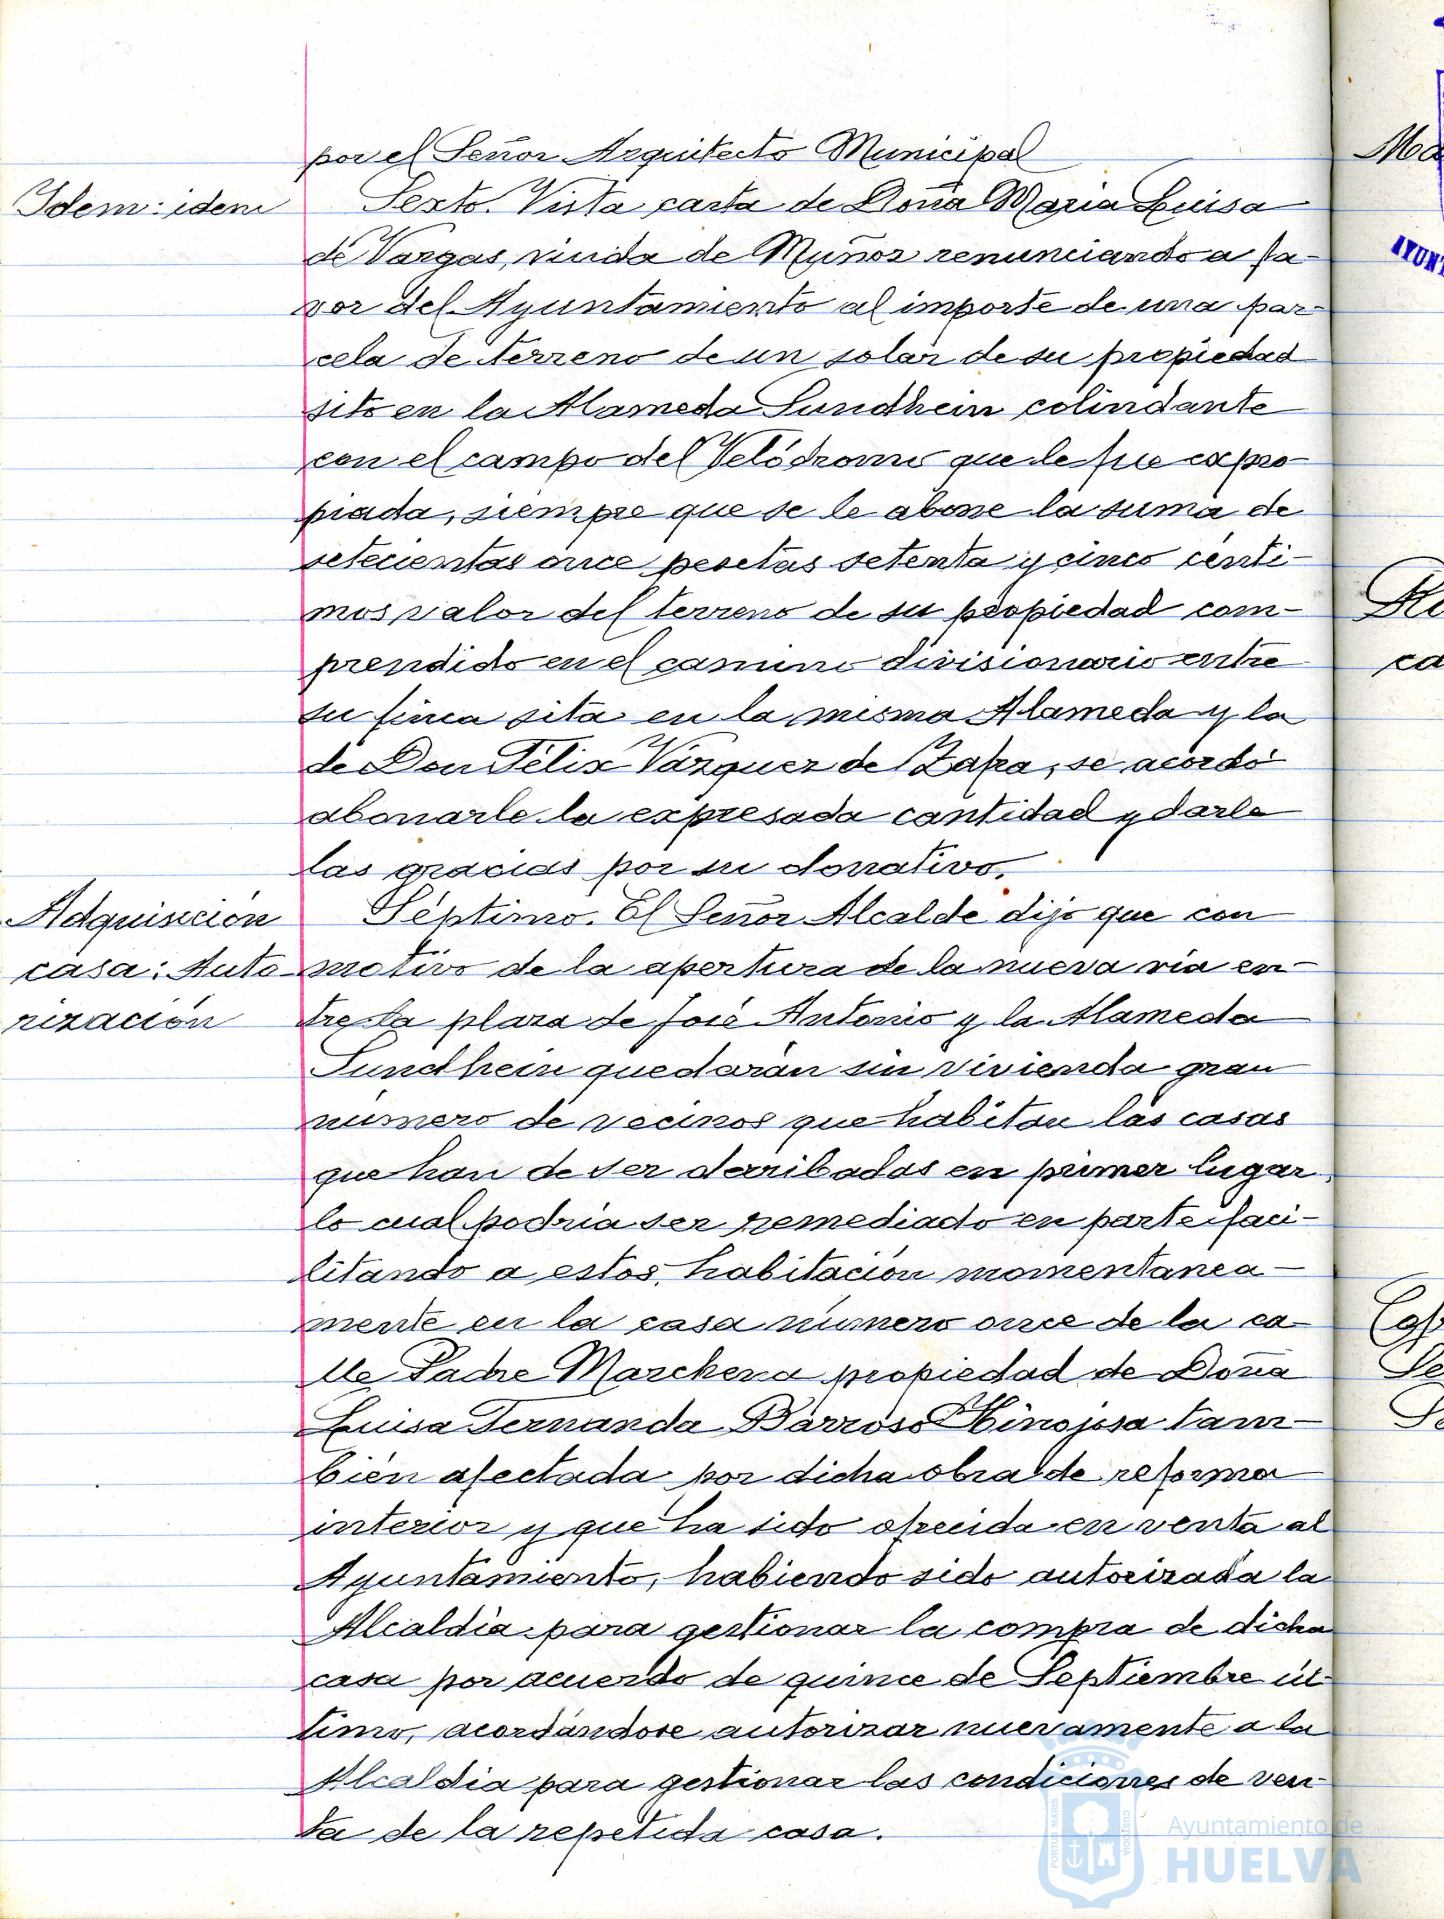 por el Señor Arquitecto Municipal
Idem: idem
Sexto. Vista carta de Doña Maria Luisa
de Vargas, viuda de Muñoz renunciando a fa-
vor del Ayuntamiento al importe de una par-
cela de terreno de un solar de su propiedad
sito en la Alameda Sundhein colindante
con el campo del Velódromo que le fue expro-
piada, siempre que se le abone la suma de
setecientas once pesetas setenta y cinco cénti-
mos valor del terreno de su propiedad com-
prendido en el camino divisionario entre
su finca sita en la misma Alameda y la
de Don Félix Vázquez de Zafra, se acordó
abonarle la expresada cantidad y darle
las gracias por su donativo.
Adquisición
casa: Auto-
rización
Séptimo. El Señor Alcalde dijo que con
motivo de la apertura de la nueva vía en-
tre la plaza de José Antonio y la Alameda
Sundhein quedarán sin vivienda gran
número de vecinos que habitan las casas
que han de ser derribadas en primer lugar,
lo cual podría ser remediado en parte faci-
litando a estos, habitación momentanea-
mente en la casa número once de la ca-
lle Padre Marchena propiedad de Doña
Luisa Fernanda Barroso Hinojosa tam-
bién afectada por dicha obra de reforma
interior y que ha sido ofrecida en venta al
Ayuntamiento, habiendo sido autorizada la
Alcaldía para gestionar la compra de dicha
casa por acuerdo de quince de Septiembre úl-
timo, acordándose autorizar nuevamente a la
Alcaldia para gestionar las condiciones de ven-
ta de la repetida casa.
Ma
AYUNT
Ru
ca
Se
PORTUS MARIS
CUSTODIA
Ayuntamiento de
HUELVA